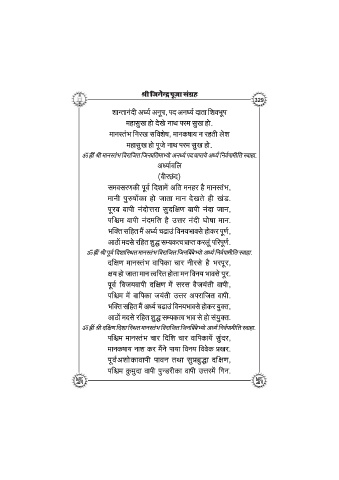 श्री जिनेन्द्र पूजा संग्रह
329
शान्तानंदी अर्घ्य अनूप, पद अनर्घ्य दाता शिवभूप
महासुख हो देखे नाथ परम सुख हो.
मानस्तंभ निरख सविशेष, मानकषाय न रहती लेश
महासुख हो पूजे नाथ परम सुख हो.
ॐ ह्रीं श्री मानस्तंभ विराजित जिनप्रतिमाभ्यो अनर्घ्य पद प्राप्तये अर्घ्य निर्वपामीति स्वाहा.
अर्घ्यावलि
(वीरछंद)
समवसरणकी पूर्व दिशामें अति मनहर है मानस्तंभ,
मानी पुरुषोंका हो जाता मान देखते ही खंड.
पूरब वापी नंदोत्तरा सुदक्षिण वापी नंदा जान,
पश्चिम वापी नंदमति है उत्तर नंदी घोषा मान.
भक्ति सहित मैं अर्घ्य चढाउं विनयभावसे होकर पूर्ण,
आठों मदसे रहित शुद्ध सम्यक्त्व प्राप्त करलूं परिपूर्ण.
ॐ ह्रीं श्री पूर्व दिशास्थित मानस्तंभ विराजित जिनबिंबेभ्यो अर्घ्य निर्वपामीति स्वाहा.
दक्षिण मानस्तंभ वापिका चार नीरसे है भरपूर,
क्षय हो जाता मान त्वरित होता मन विनय भावसे पुर.
पूर्व विजयवापी दक्षिण में सरस वैजयंती वापी,
पश्चिम में वापिका जयंती उत्तर अपराजित वापी.
भक्ति सहित मैं अर्घ्य चढाउं विनयभावसे होकर युक्त,
आठों मदसे रहित शुद्ध सम्यक्त्व भाव से हो संयुक्त.
ॐ ह्रीं श्री दक्षिण दिशा स्थित मानस्तंभ विराजित जिनबिंबेभ्यो अर्घ्य निर्वपामीति स्वाहा.
पश्चिम मानस्तंभ चार दिशि चार वापिकायें सुंदर,
मानकषाय नाश कर मैंने पाया विनय विवेक प्रखर.
पूर्वअशोकावापी पावन तथा सुप्रबुद्धा दक्षिण,
पश्चिम कुमुदा वापी पुन्डरीका वापी उत्तरमें गिन.